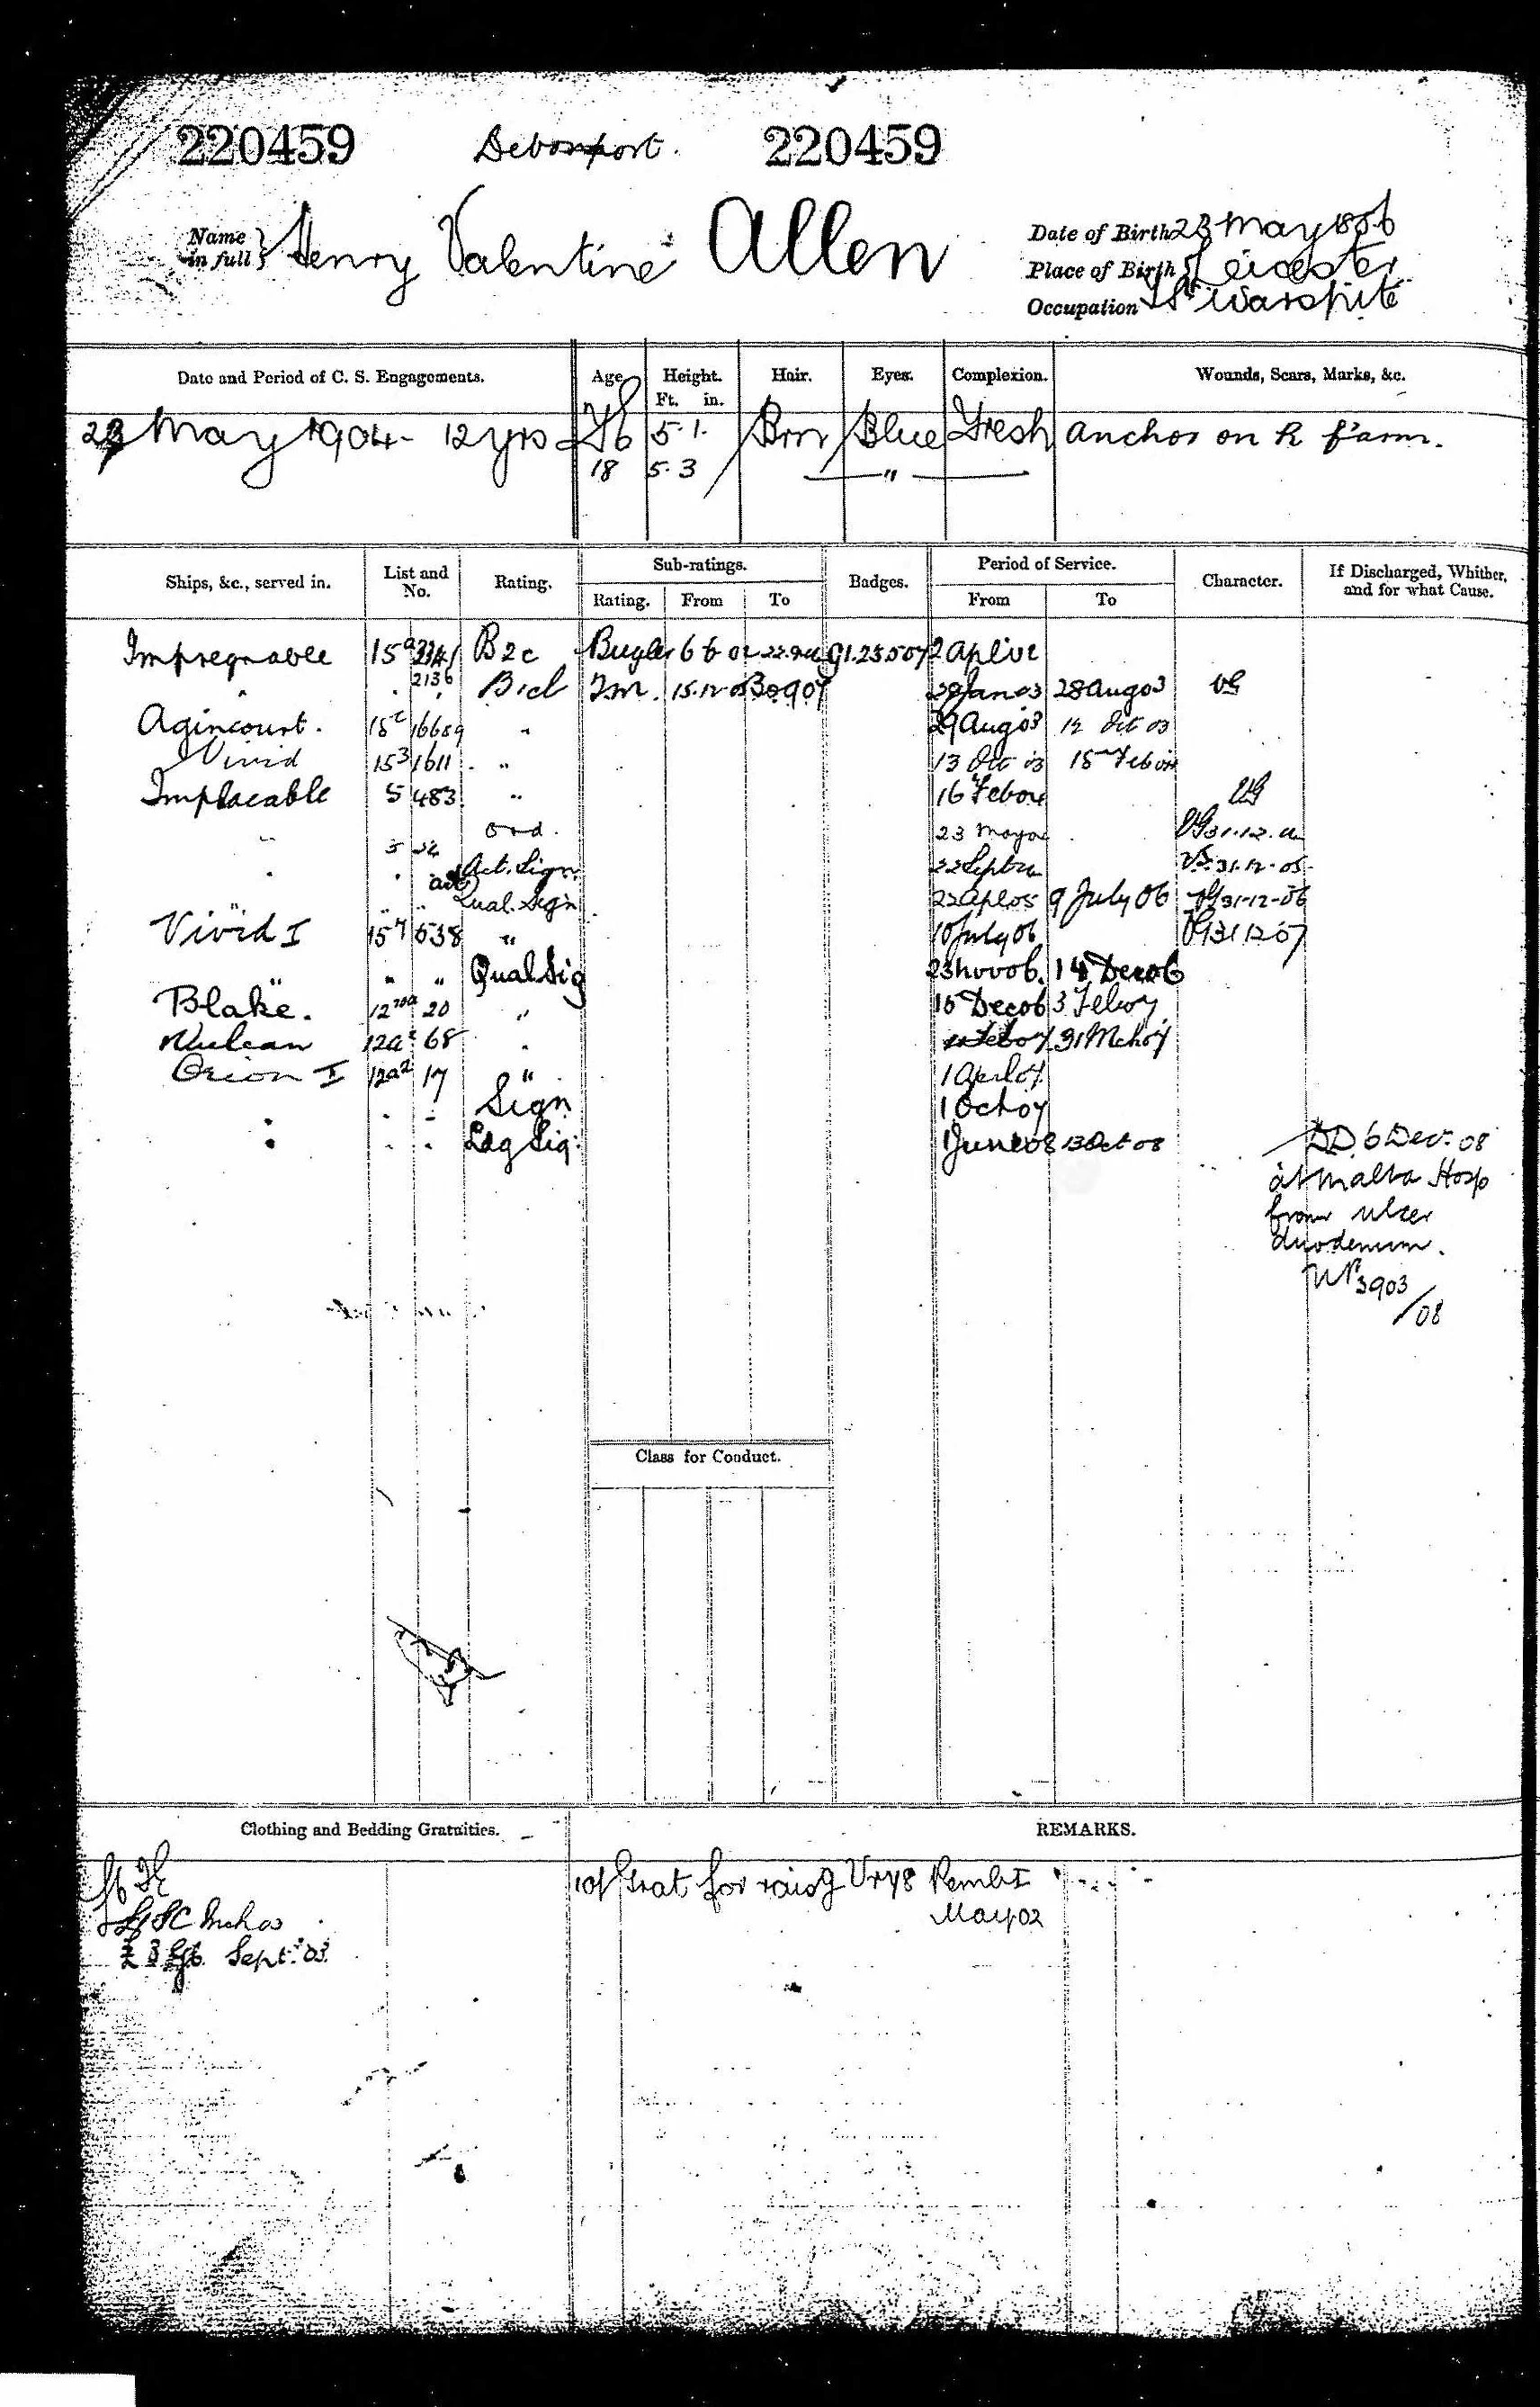 220459 Devonport. 220459
Name in full } Henry Valentine Allen
Date of Birth 23 May 1886
Place of Birth Leicester
Occupation Warspite
Date and Period of C. S. Engagements. Age Height. Ft. in. Hair. Eyes. Complexion. Wounds, Scars, Marks, &c.
23 May 1904 - 12 yrs 16 5.1. Brn Blue Fresh Anchor on R f'arm.
18 5.3 — " —
Ships, &c., served in. List and No. Rating. Sub-ratings. Rating. From To Badges. Period of Service. From To Character. If Discharged, Whither, and for what Cause.
Impregnable B2c Bugler 6 6 02 2 Apl 02
" 2136 28 Jan 03 28 Aug 03 VG
Agincourt. 15c 16689 " 29 Aug 03 12 Oct 03
Vivid 15 3 1611 " 13 Oct 03 15 Feb 04
Implacable 5 483 " 16 Feb 04 VG
" Ord. 23 May 04 VG 31.12.04
" Act. Sign. 22 Sept 04 VG 31-12-05
" Act Qual. Sign 22 Apl 05 9 July 06 VG 31-12-06
Vivid I 638 " 10 July 06 VG 31 12 07
" " " Qual Sig 23 Nov 06. 14 Dec 06
Blake. 20 " 15 Dec 06 3 Feb 07
Vulcan 12a2 68 " 4 Feb 07 31 Mch 07
Orion I 12a2 17 " 1 April 07
Sign 1 Oct 07
" " " Ldg Sig: 1 June 08 13 Oct 08 DD 6 Dec: 08
at Malta Hosp
from ulcer
duodenum.
3903
/08
Class for Conduct.
Clothing and Bedding Gratuities. REMARKS.
10/ Grat for raisg Pembk I
May 02
Sept: 03.